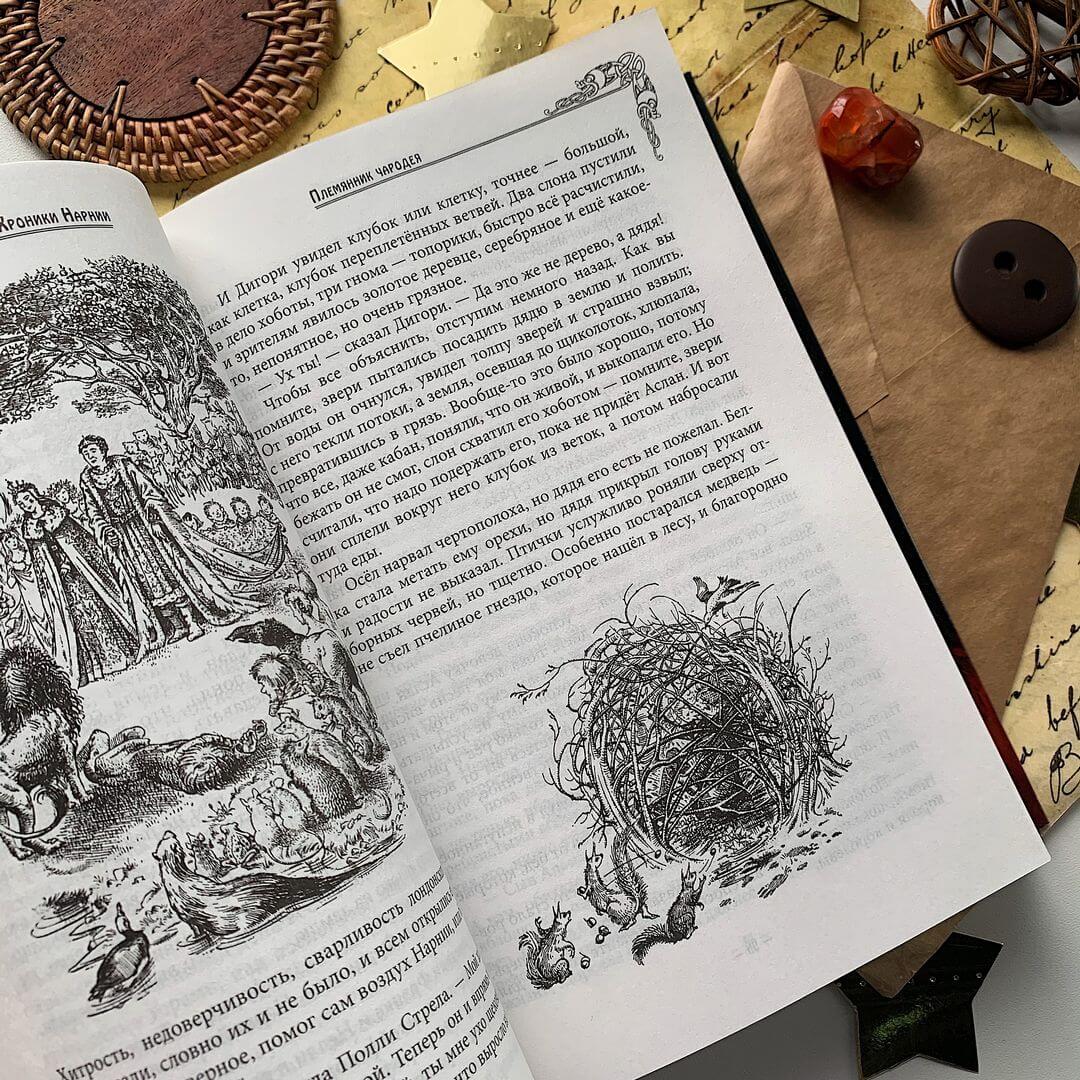 Хроники Нарнии
Хитрость, недоверчивость, сварливость лондонс
али, словно их и не было, и всем открылис
верное, помог сам воздух Нарнии,
да Полли Стрела. —
ой. Теперь он и вправ
ты мне ухо
что вырос
Племянник чародея
И Дигори увидел клубок или клетку, точнее — большой,
как клетка, клубок переплетённых ветвей. Два слона пустили
в дело хоботы, три гнома — топорики, быстро всё расчистили,
и зрителям явилось золотое деревце, серебряное и ещё какое-
то, непонятное, но очень грязное.
— Ух ты! — сказал Дигори. — Да это же не дерево, а дядя!
Чтобы все объяснить, отступим немного назад. Как вы
помните, звери пытались посадить дядю в землю и полить.
От воды он очнулся, увидел толпу зверей и страшно взвыл;
с него текли потоки, а земля, осевшая до щиколоток, хлюпала,
превратившись в грязь. Вообще-то это было хорошо, потому
что все, даже кабан, поняли, что он живой, и выкопали его. Но
бежать он не смог, слон схватил его хоботом — помните, звери
считали, что надо подержать его, пока не придёт Аслан. И вот
они сплели вокруг него клубок из веток, а потом набросали
туда еды.
Осёл нарвал чертополоха, но дядя его есть не пожелал. Бел-
ка стала метать ему орехи, но дядя прикрыл голову руками
и радости не выказал. Птички услужливо роняли сверху от-
борных червей, но тщетно. Особенно постарался медведь —
не съел пчелиное гнездо, которое нашёл в лесу, и благородно
hope.